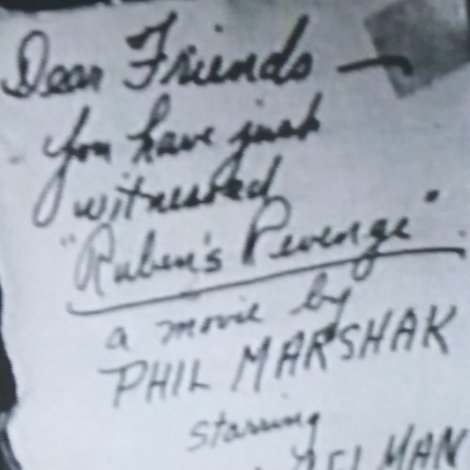 Dear Friends —
you have just
witnessed
"Ruben's Revenge"
a movie by
PHIL MARSHAK
starring